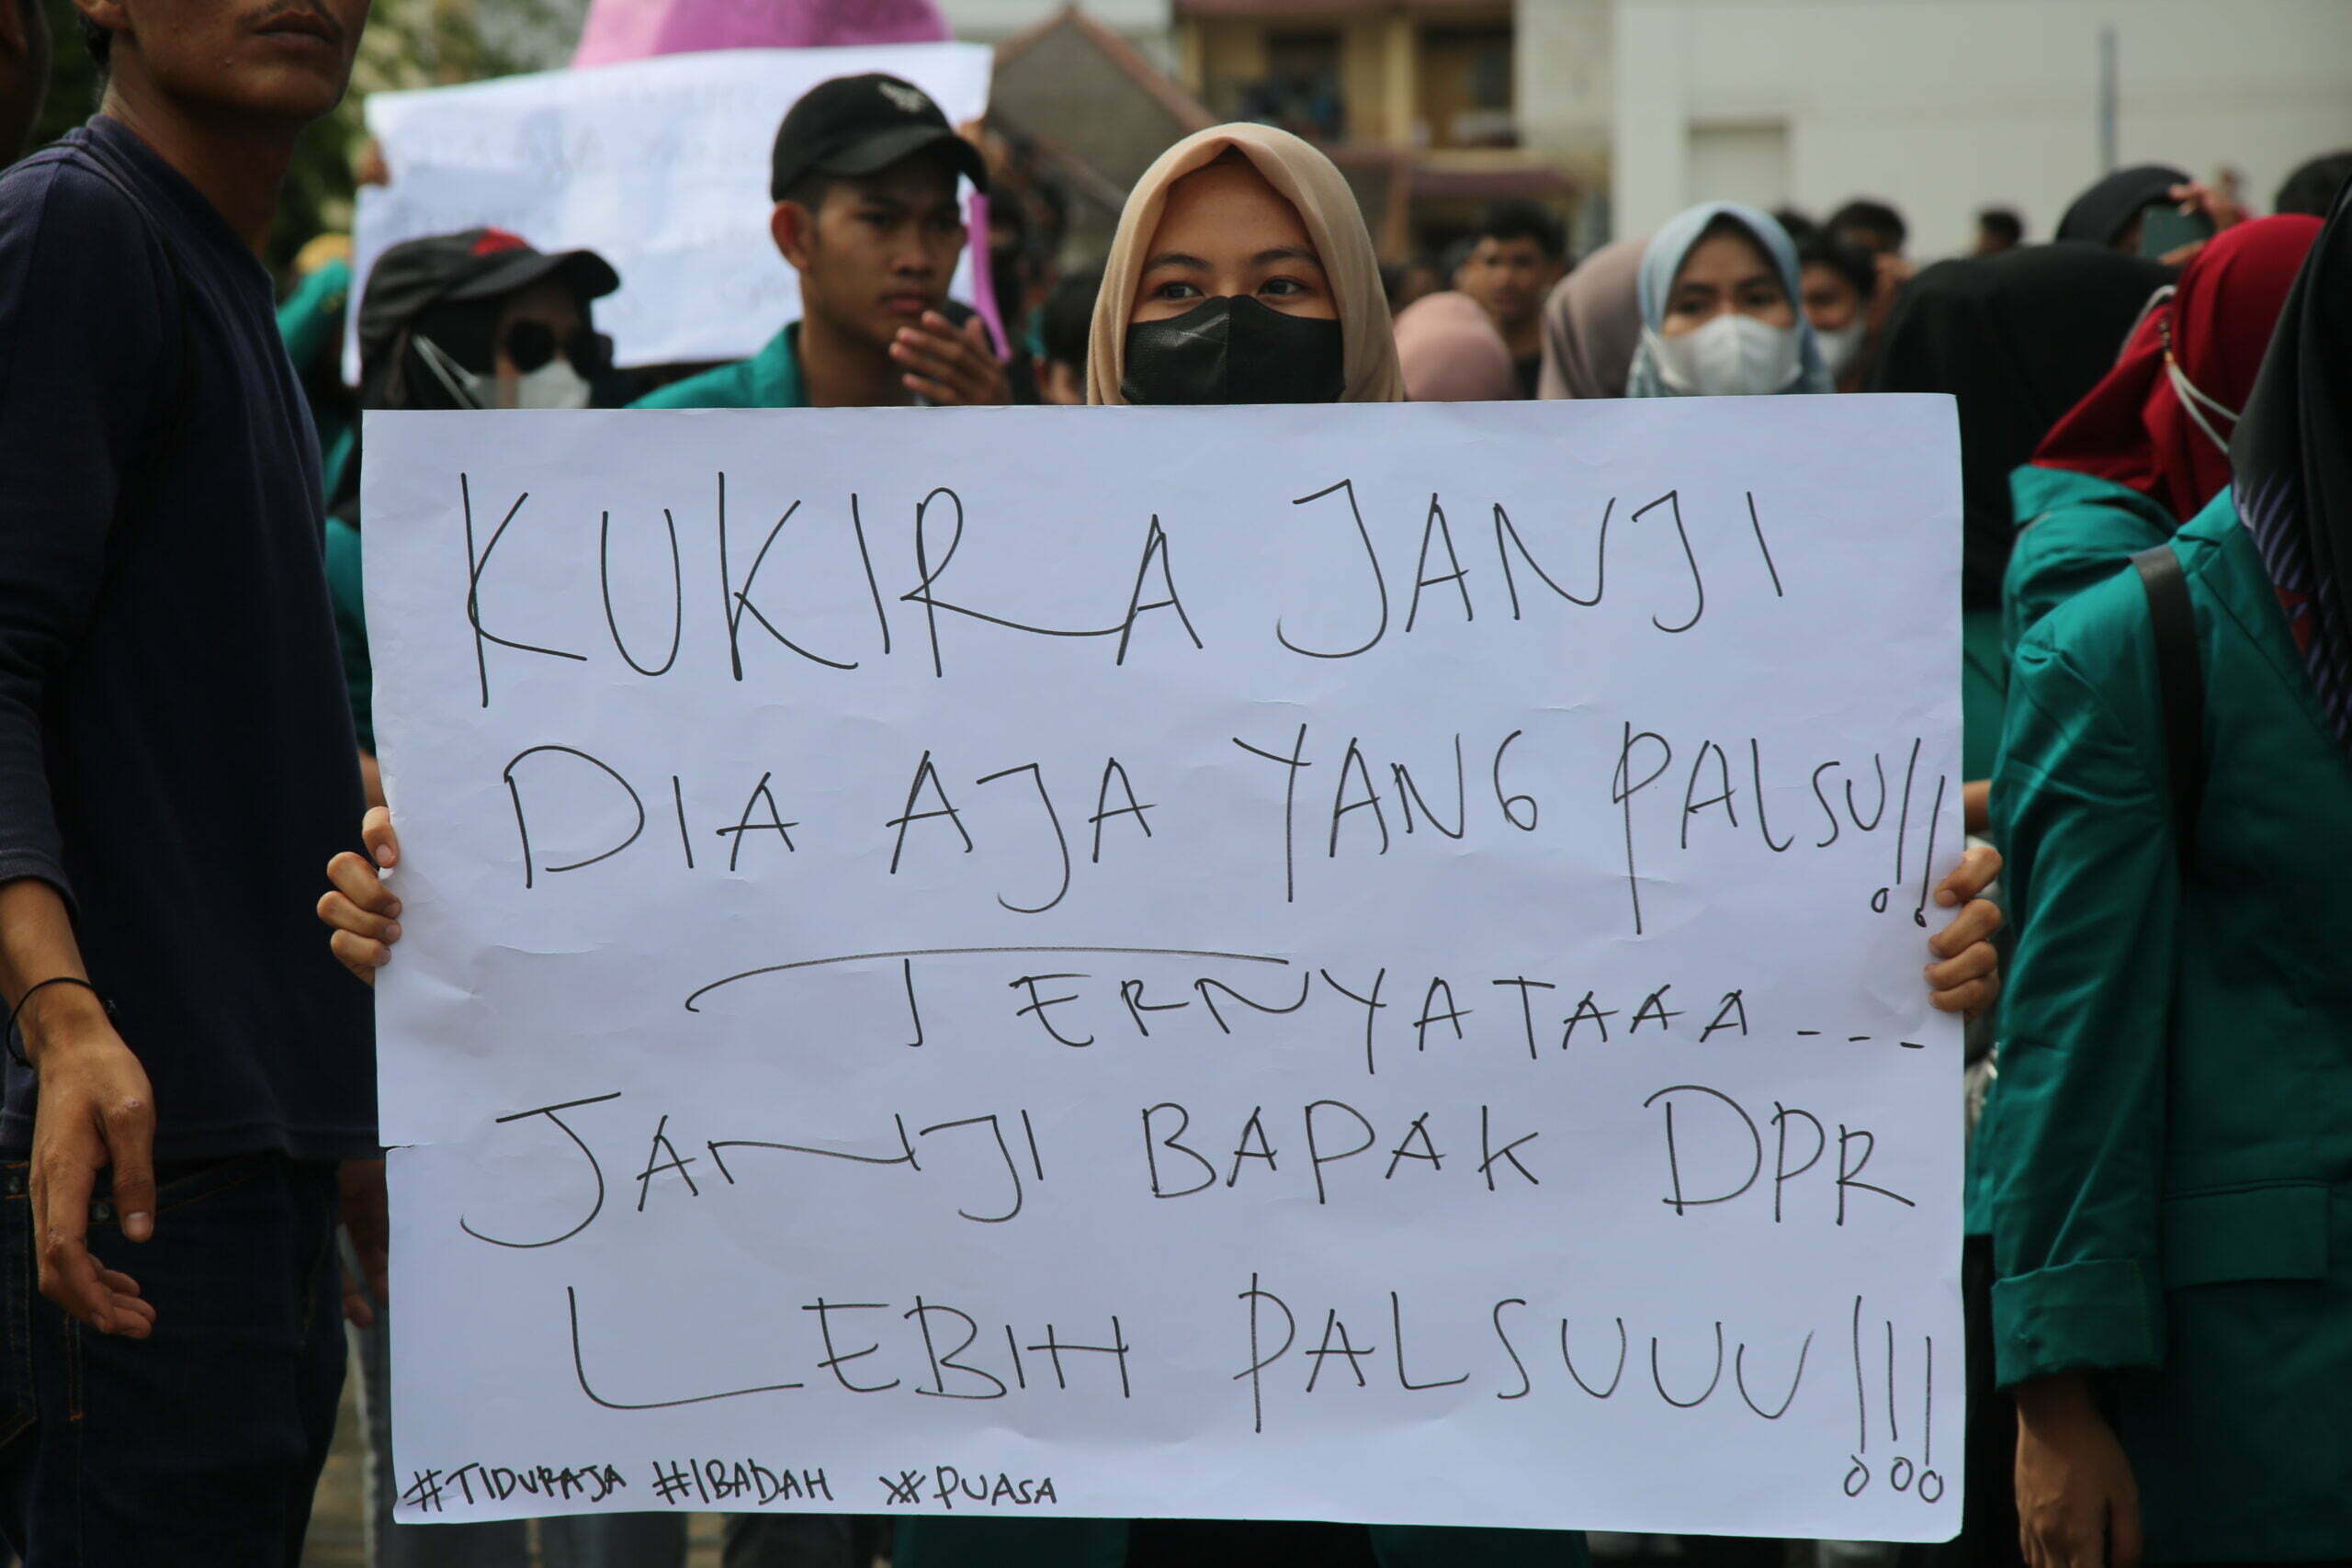 KUKIRA JANJI
DIA AJA YANG PALSU!!
TERNYATAAA---
JANJI BAPAK DPR
LEBIH PALSUUU!!!
#TIDURAJA #IBADAH #PUASA